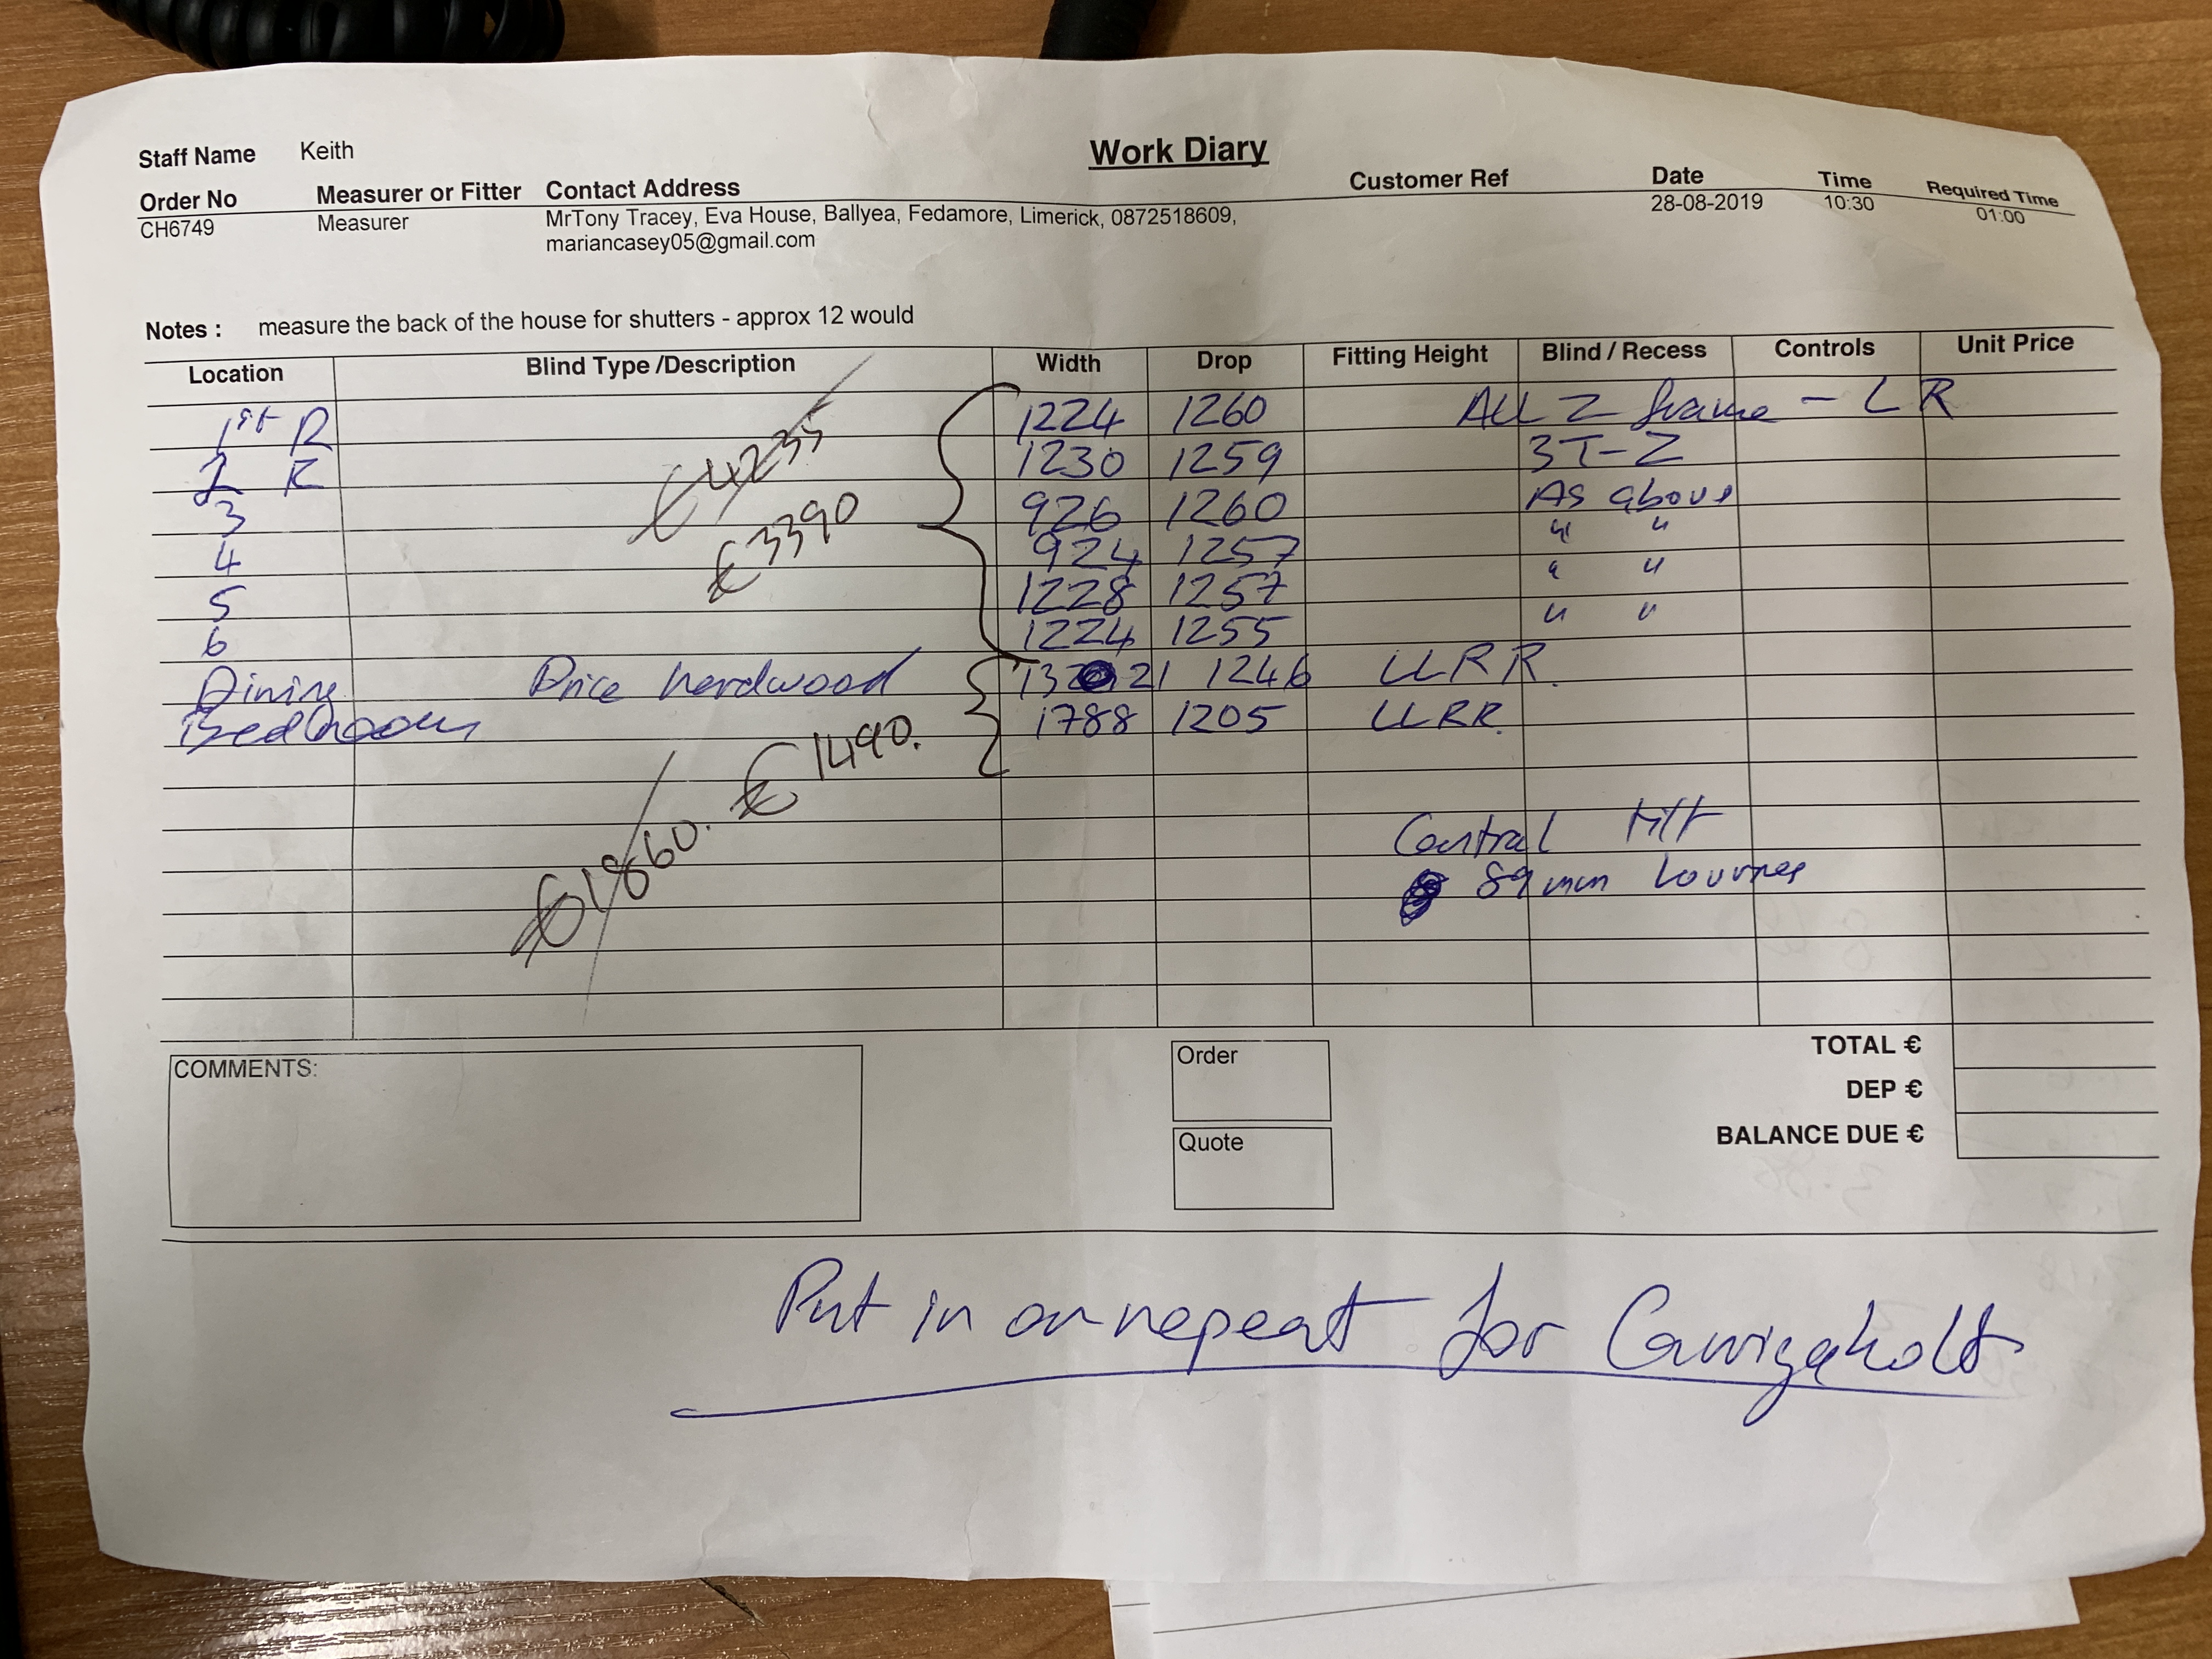 Work Diary
Staff Name Keith
Order No Measurer or Fitter Contact Address Customer Ref Date Time Required Time
CH6749 Measurer MrTony Tracey, Eva House, Ballyea, Fedamore, Limerick, 0872518609, 28-08-2019 10:30 01:00
mariancasey05@gmail.com
Notes : measure the back of the house for shutters - approx 12 would
Location Blind Type /Description Width Drop Fitting Height Blind / Recess Controls Unit Price
1st R 1224 1260 ALL Z frame - L R
2 R 1230 1259 3T-Z
€4235
3 926 1260 As above
€3390
4 924 1257 " "
5 1228 1257 " "
6 1224 1255 " "
Dining Price hardwood 1321 1246 LLRR
Bedroom 1788 1205 LLRR
€1490.
€1860.
Central tilt
89mm Louvres
COMMENTS:
Order
Quote
TOTAL €
DEP €
BALANCE DUE €
Put in on repeat for